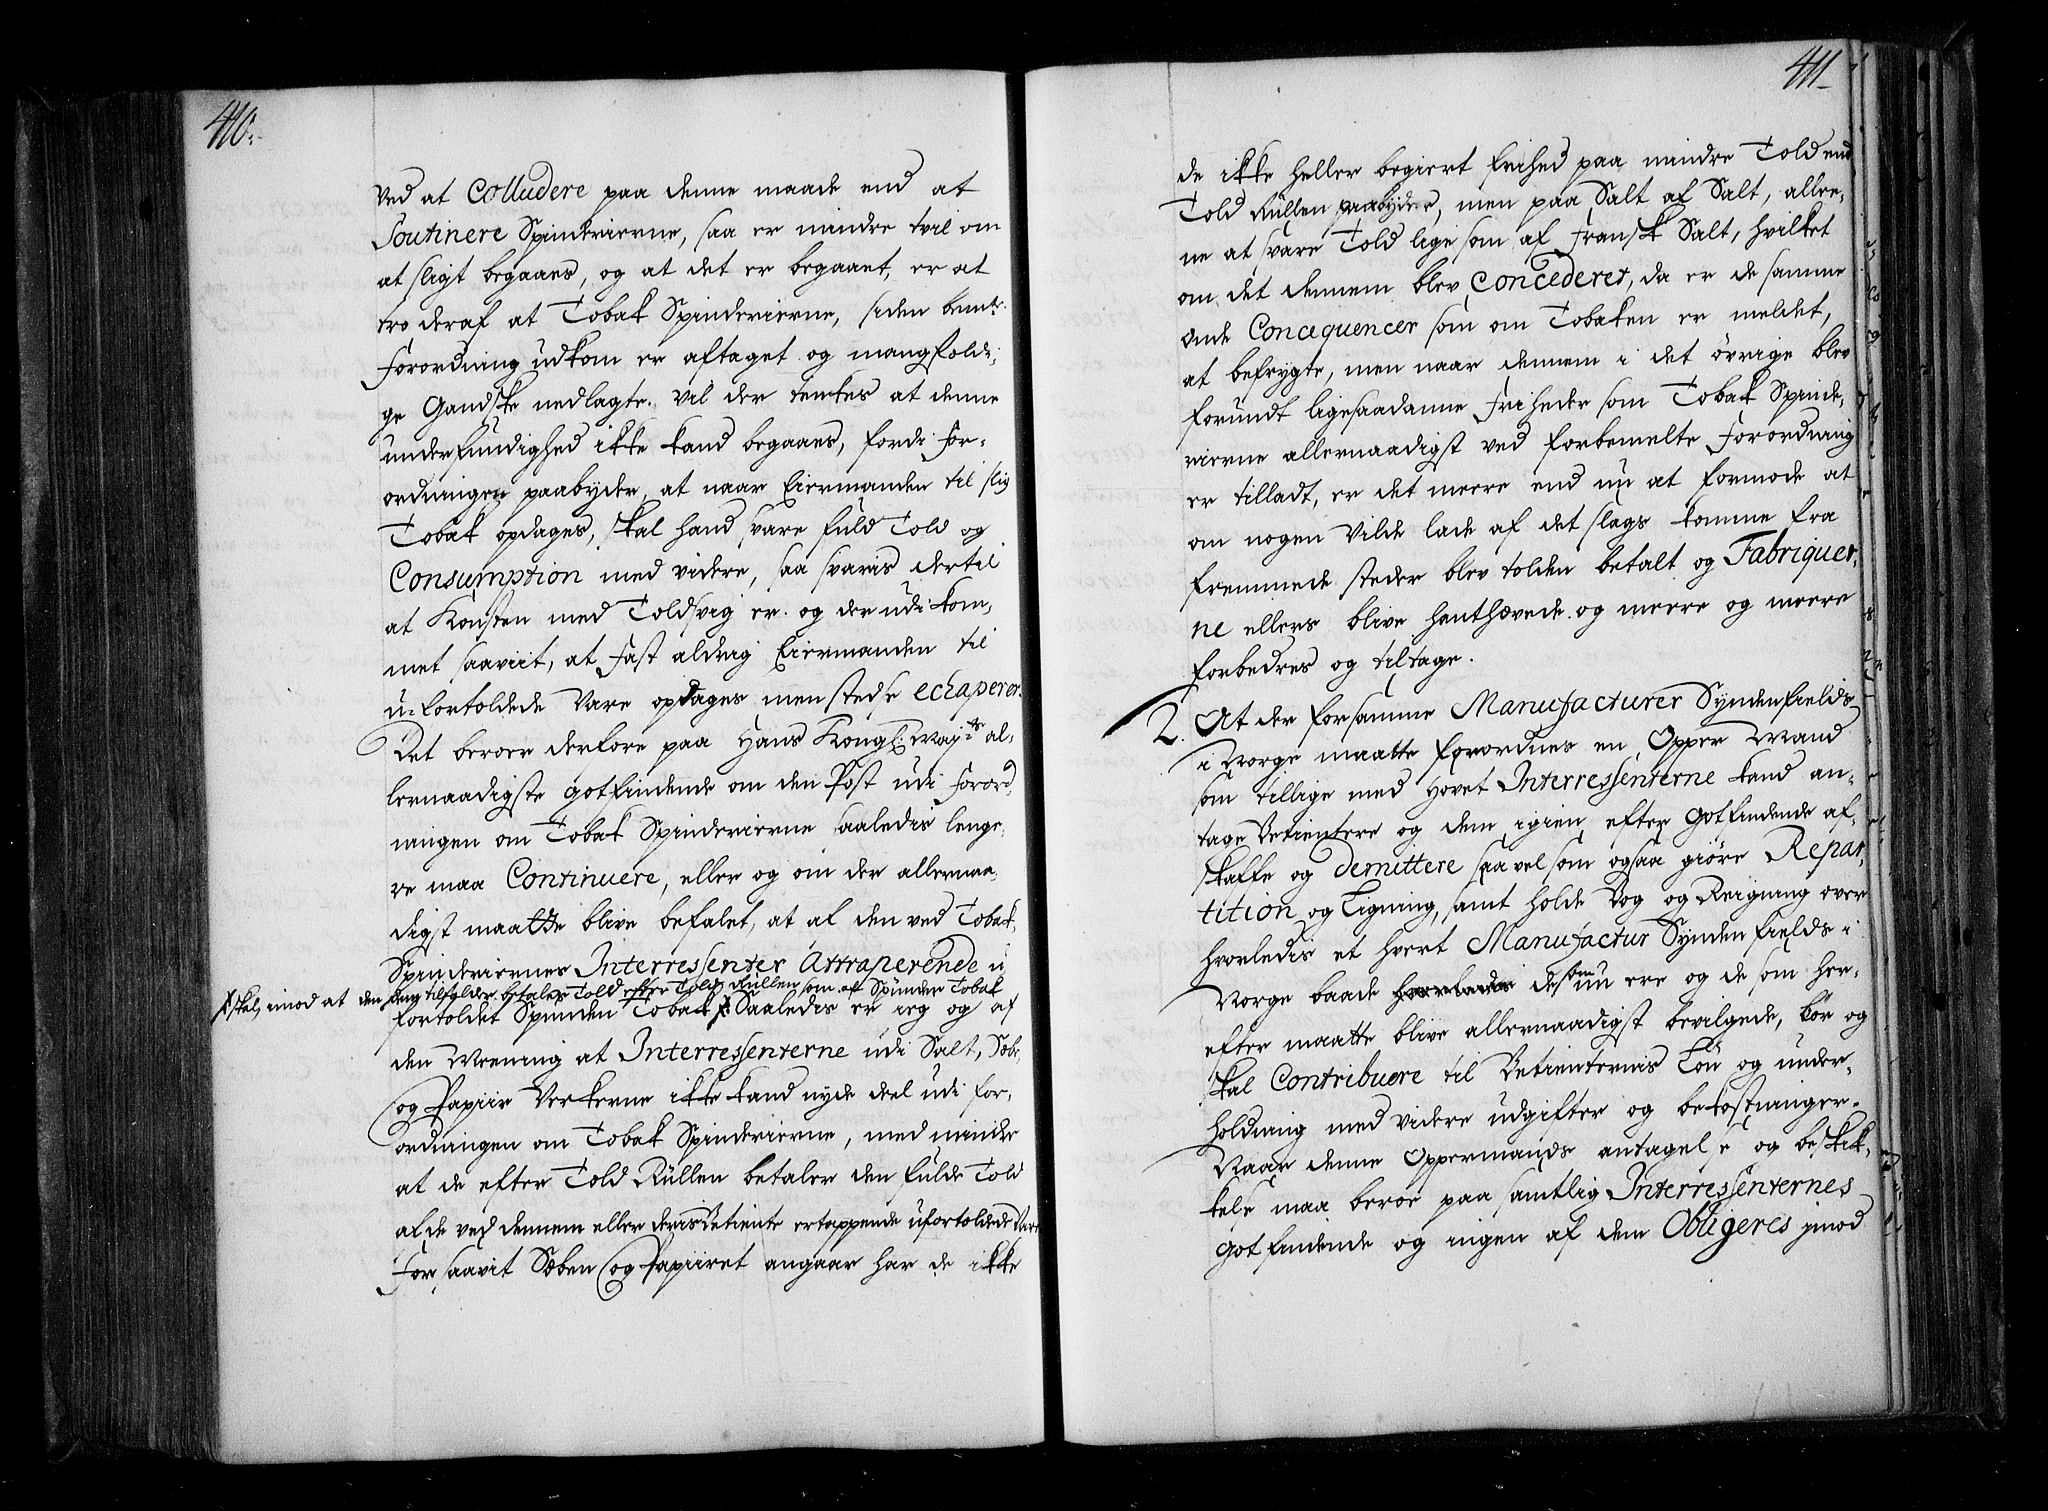 410.
Ved at Colludere paa denne maade end at
Soutinere Spinderierne, saa er mindre tvil om
at sligt begaaes, og at det er begaaet, er at
troe deraf at Tobak Spinderierne, siden bemte
Forordning udkom er aftaget og mangfoldi,
ge Gandske nedlagte. Vil der tenkes at denne
underfundighed ikke kand begaaes, fordi For-
ordningen paabyder, at naar Eiermanden til slig
Tobak opdages, skal hand svare fuld Told og
Consumption med videre, saa svaris dertil
at Konsten med Toldsvig er og der udi kom,
met saaviit, at fast aldrig Eiermanden til
u-fortoldede Vare opdages men stedse echaperer.
Det beroer derfore paa Hans Kongl: May:ts al,
lernaadigste gotfindende om den Post udi Forord,
ningen om Tobak Spinderierne saaledis lenge,
re maa Continuere, eller og om der allernaa,
digst maatte blive befalet, at af den ved Tobak,
Spinderiernes Interressenter Attraperende u,
skal, imod at den dem tilfalder betales Told efter Told Rullen som af Spunden Tobak
fortoldet Spunden Tobak Saaledis er ieg og af
den Meening at Interressenterne udi Salt, Sæbe,
og Papiir Verkerne ikke kand nyde deel udi for,
ordningen om Tobak Spinderierne, med mindre
at de efter Told Rullen betaler den fulde Told
af de ved dennem eller deris Betiente ertappende ufortoldede Vare
For saavit Sæben og Papiiret angaar har de ikke
411
de ikke heller begiert frihed paa mindre Told end
Told Rullen paabyder, men paa Salt af Salt, allee,
ne at svare Told lige som af Fransk Salt, hvilket
om det dennem blev Concederet, da er de samme
onde Concequencer som om Tobaken er meldet,
at befrygte, men naar dennem i det øvrige blev
forundt ligesaadanne Friheder som Tobak Spinde,
rierne allernaadigst ved forbemelte Forordning
er tilladt, er det meere end nu at formode at
om nogen vilde lade af det slags komme fra
fremmede steder blev tolden betalt og Fabriquer,
ne ellers blive hanthævede og meere og meere
forbedres og tiltage.
2. At der for samme Manufacturer Syndenfields
i Norge maatte forordnes en Opper Mand
som tillige med Hovet Interressenterne kand an,
tage Betientere og dem igien efter Gotfindende af,
skaffe og demittere saavel som ogsaa giøre Repar,
tition og Ligning, samt holde Bog og Reigning over
hvorledis et hvert Manufactur Synden fields i
Norge baade de som nu ere og de som her,
efter maatte blive allernaadigst bevilgede, bør og
skal Contribuere til Betienternis Løn og under,
holdning med videre udgifter og bekostninger.
Naar denne Oppermands antagelse og beskik,
kelse maa beroe paa samtlig Interressenternes
gotfindende og ingen af dem Obligeres imod